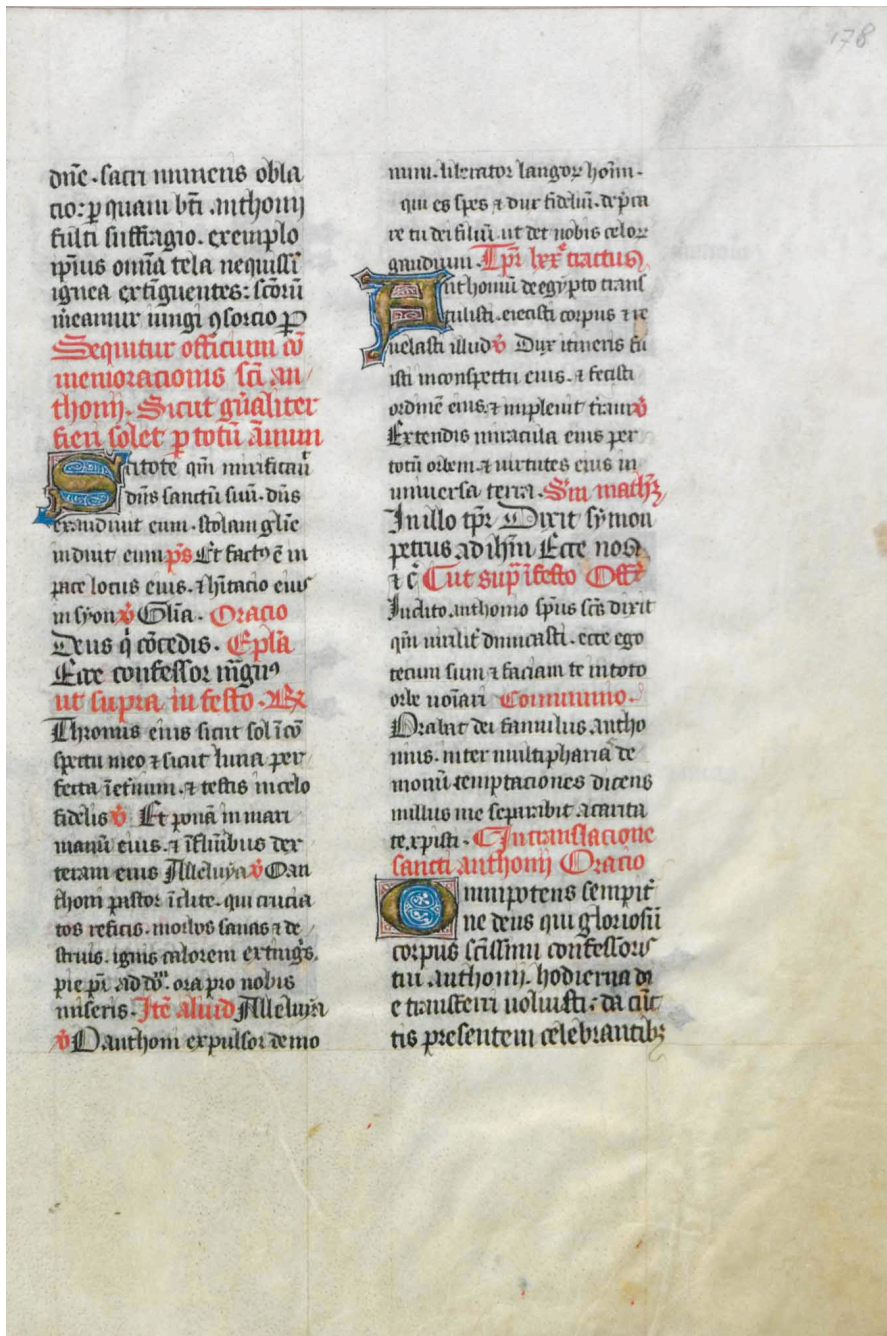 178
dñe. sacri muneris obla
cio: ꝑ quam bti anthonij
fulti suffragio. exemplo
ipius omnia tela nequissi
ignea extinguentes: scõrũ
mẽamur iungi ꝯsorcio Per
Sequitur officium cõ
memoracionis sci an
thonij. Sicut gñaliter
fieri solet ꝑ totũ ãnum
Scitote qm̃ mirificauit
dñs sanctũ suũ. dñs
exaudiuit eum. stolam glie
induit eum ps̃ Et factꝰ ẽ in
pace locus eius. ⁊ hitacio eius
in syon v̾ Glia. Oracio
Deus q̇ cõcedis. Epla
Ecce confessor mgnꝰ
ut supra in festo. ℞
Thronus eius sicut sol ĩ cõ
spectu meo ⁊ sicut luna per
fecta ĩ etnum. ⁊ testis in celo
fidelis v̾ Et ponã in mari
manũ eius. ⁊ ĩ flũibus dex
teram eius Alleluya v̾ O an
thoni pastor ĩclite. qui crucia
tos reficis. morbos sanas ⁊ de
struis. ignis calorem extĩgis.
pie pr̃ ad dñm ora pro nobis
miseris. Itẽ aliud Alleluya
v̾ O anthoni expulsor demo
num. liberator langoꝝ hoĩm.
qui es spes ⁊ dux fideliũ. depca
re tu dei filiũ ut det nobis celoꝝ
gaudium. Tpr̃ lxx̃ tractus
Anthoniũ de egypto trans
tulisti. eiecisti corpus ⁊ re
uelasti illud v̾ Dux itineris fu
isti in conspectu eius. ⁊ fecisti
ordinẽ eius. ⁊ impleuit trãm v̾
Extendis miracula eius per
totũ orbem. ⁊ uirtutes eius in
uniuersa terra. Sm matheũ
In illo tpr̃ Dixit symon
petrus ad ihm̃ Ecce nos
⁊ c̃ Cut sup̃ ĩ festo Offꝫ
Indito anthonio spũs scs dixit
qm̃ uirilit̃ dimicasti. ecce ego
tecum sum ⁊ faciam te in toto
orbe noĩari Communio.
Orabat dei famulus antho
nius. inter multipharia de
monũ temptaciones dicens
nullus me separabit a carita
te xpisti. C In translacione
sancti anthonij Oracio
Omnipotens sempit̃
ne deus qui gloriosũ
corpus scissimi confessoris
tui anthonij. hodierna di
e transferri uoluisti: da cũc
tis presentem celebrantibꝫ